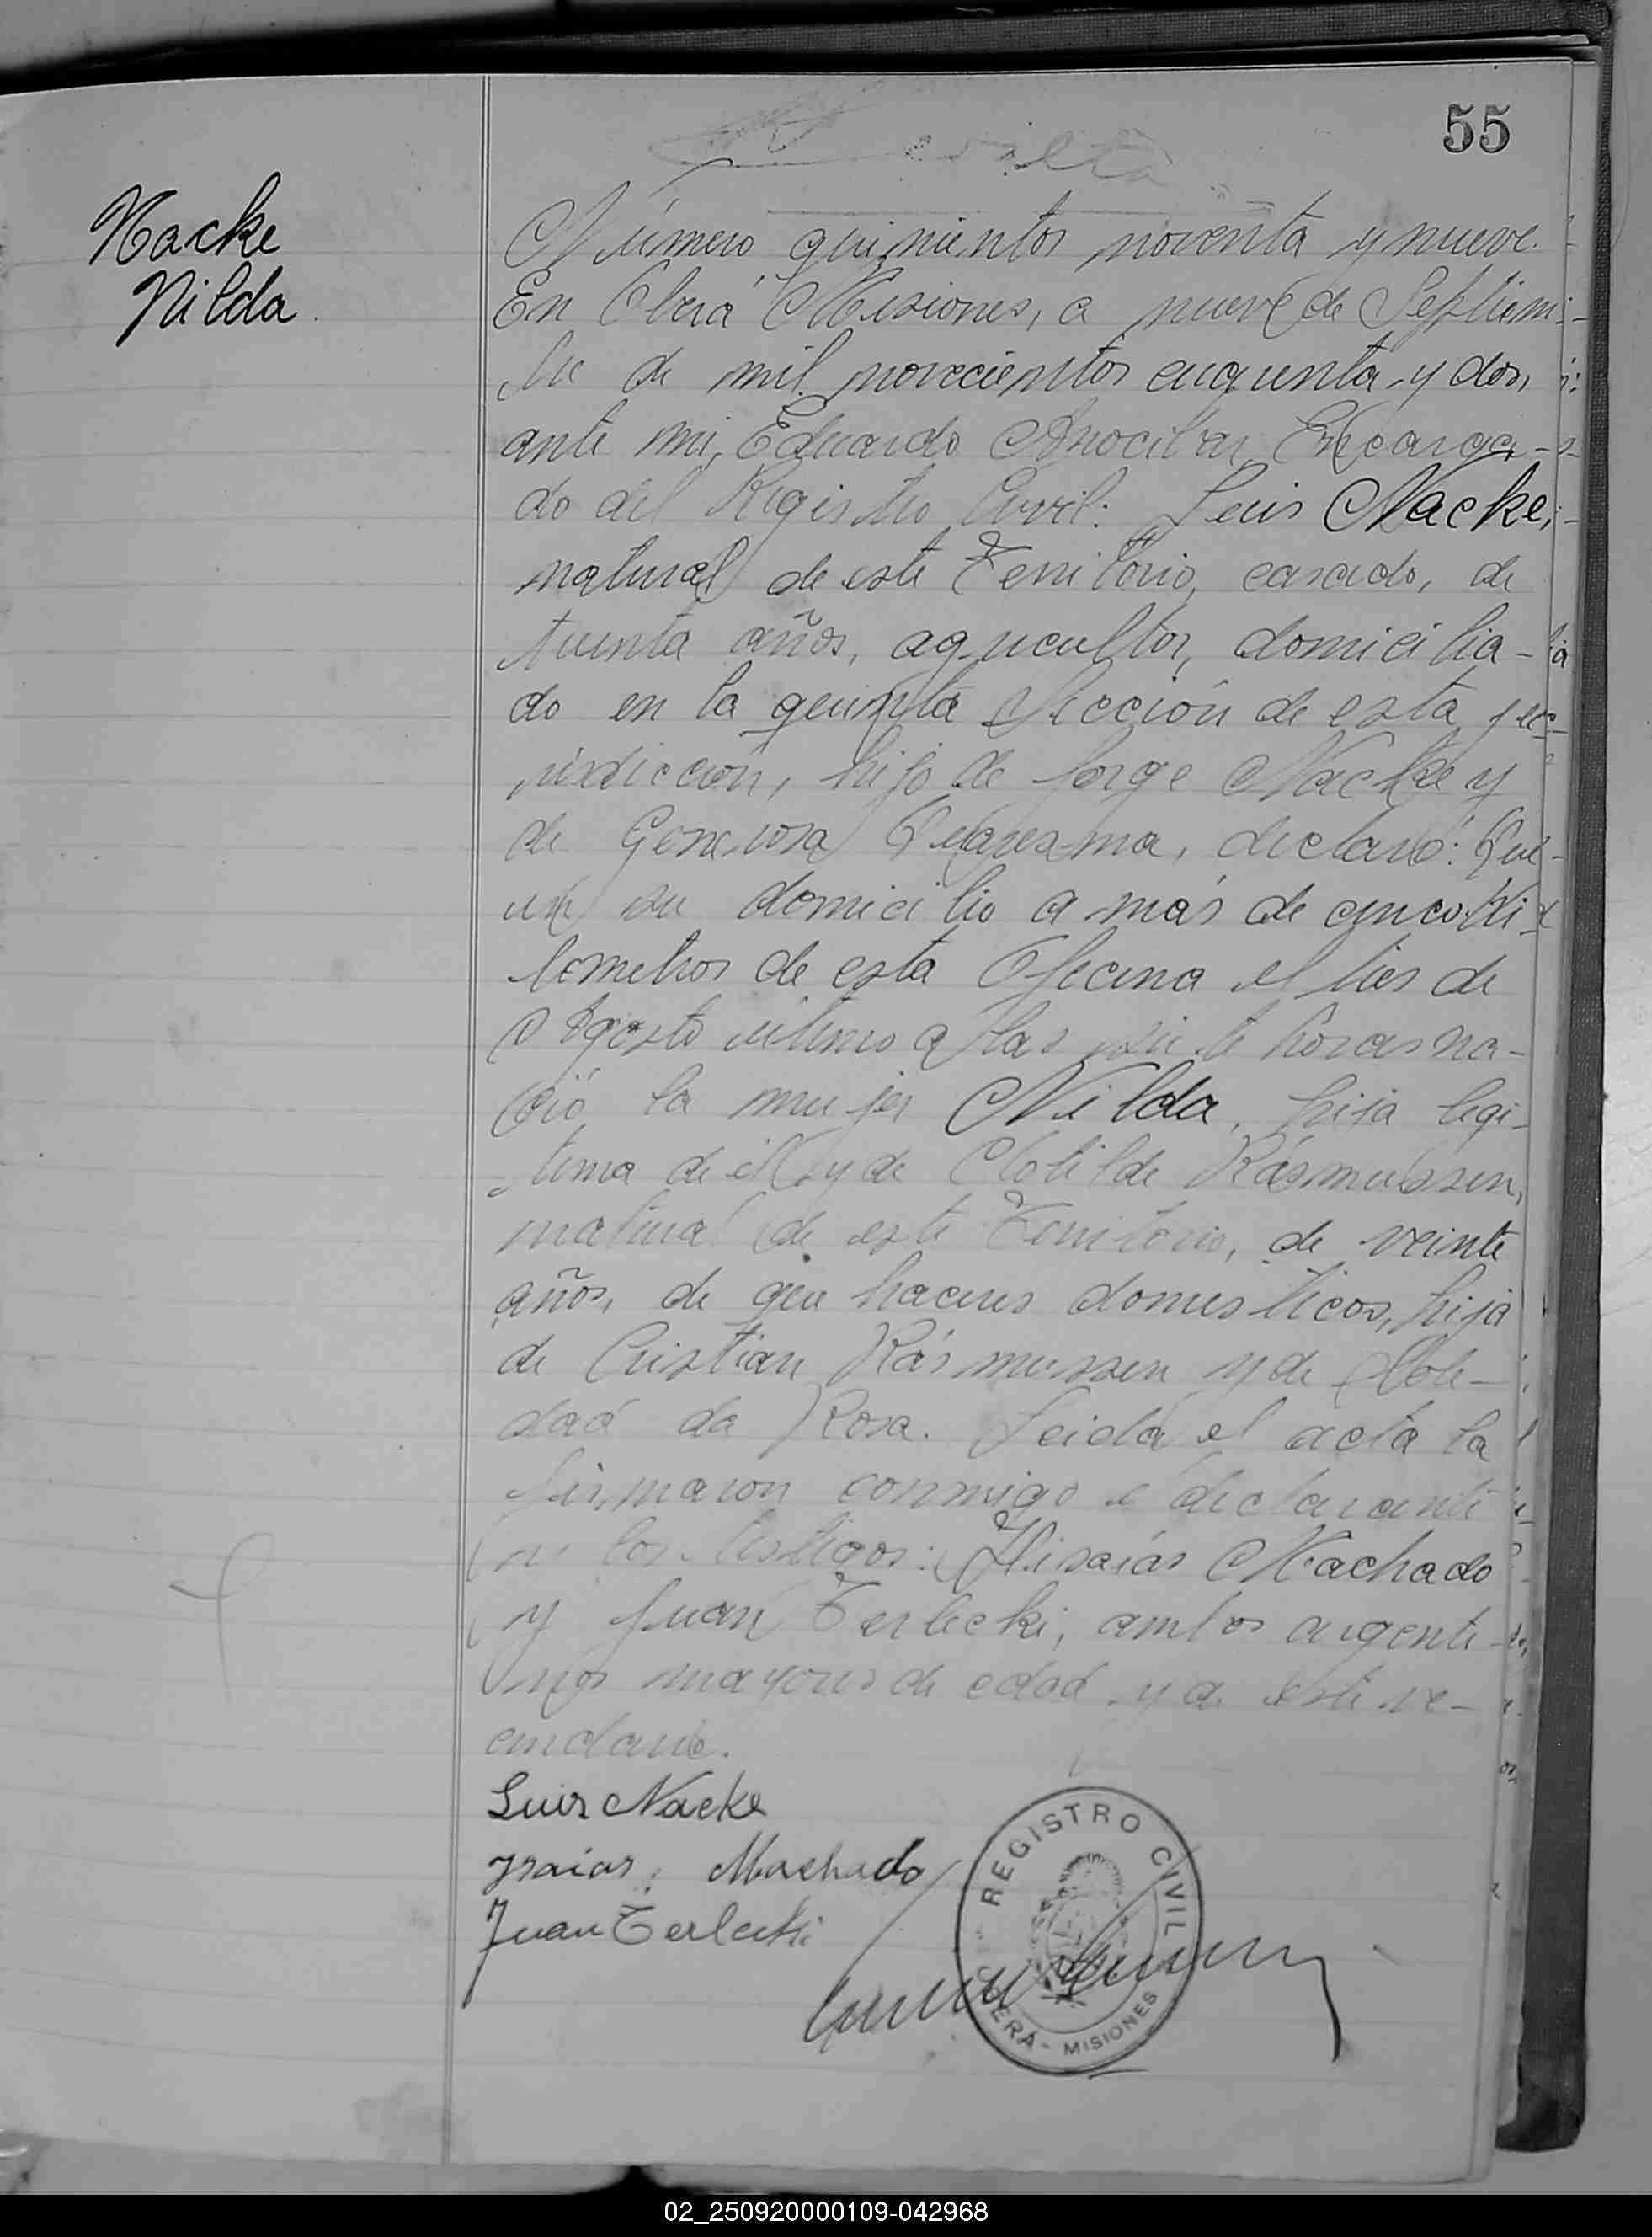 55
Nacke
Nilda.
Número quinientos noventa y nueve.
En Oberá Misiones, a nueve de Septiem-
bre de mil novecientos cincuenta y dos,
ante mi, Eduardo Encarga-
do del Registro Civil: Luis Nacke,
natural de este Territorio, casado, de
treinta años, agricultor, domicilia-
do en la quinta Sección de esta ju-
risdicción, hijo de Jorge Nacke y
de Generosa Cuaresma, declaró: Que
en su domicilio a más de cinco ki-
lometros de esta Oficina el tres de
Agosto último a las siete horas na-
ció la mujer Nilda, hija legi-
tima de él y de Clotilde Rásmussen,
natural de este Territorio, de veinte
años, de que haceres domesticos, hija
de Cristian Rásmussen y de Sole-
dad da Rosa. Leida el acta la
firmaron conmigo el declarante
y los testigos: Misaías Machado
y Juan Terlecki, ambos argenti-
nos mayores de edad y de este ve-
cindario.
Luis Nacke
Isaias Machado
Juan Terlecki
REGISTRO CIVIL
OBERÁ - MISIONES
02_250920000109-042968